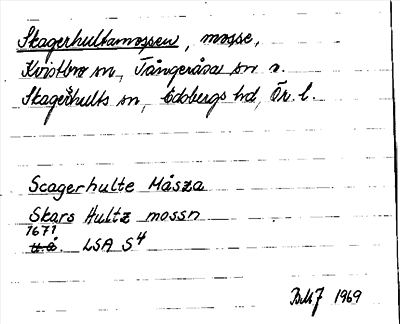 Skagerhultamossen, mosse,
Kvistbro sn, Tångeråsa sn o.
Skagerhults sn, Edsbergs hd, Ör. l.
Scagerhulte Måsza
Skars Hultz mossn
1671
u å. LSA S4
1969